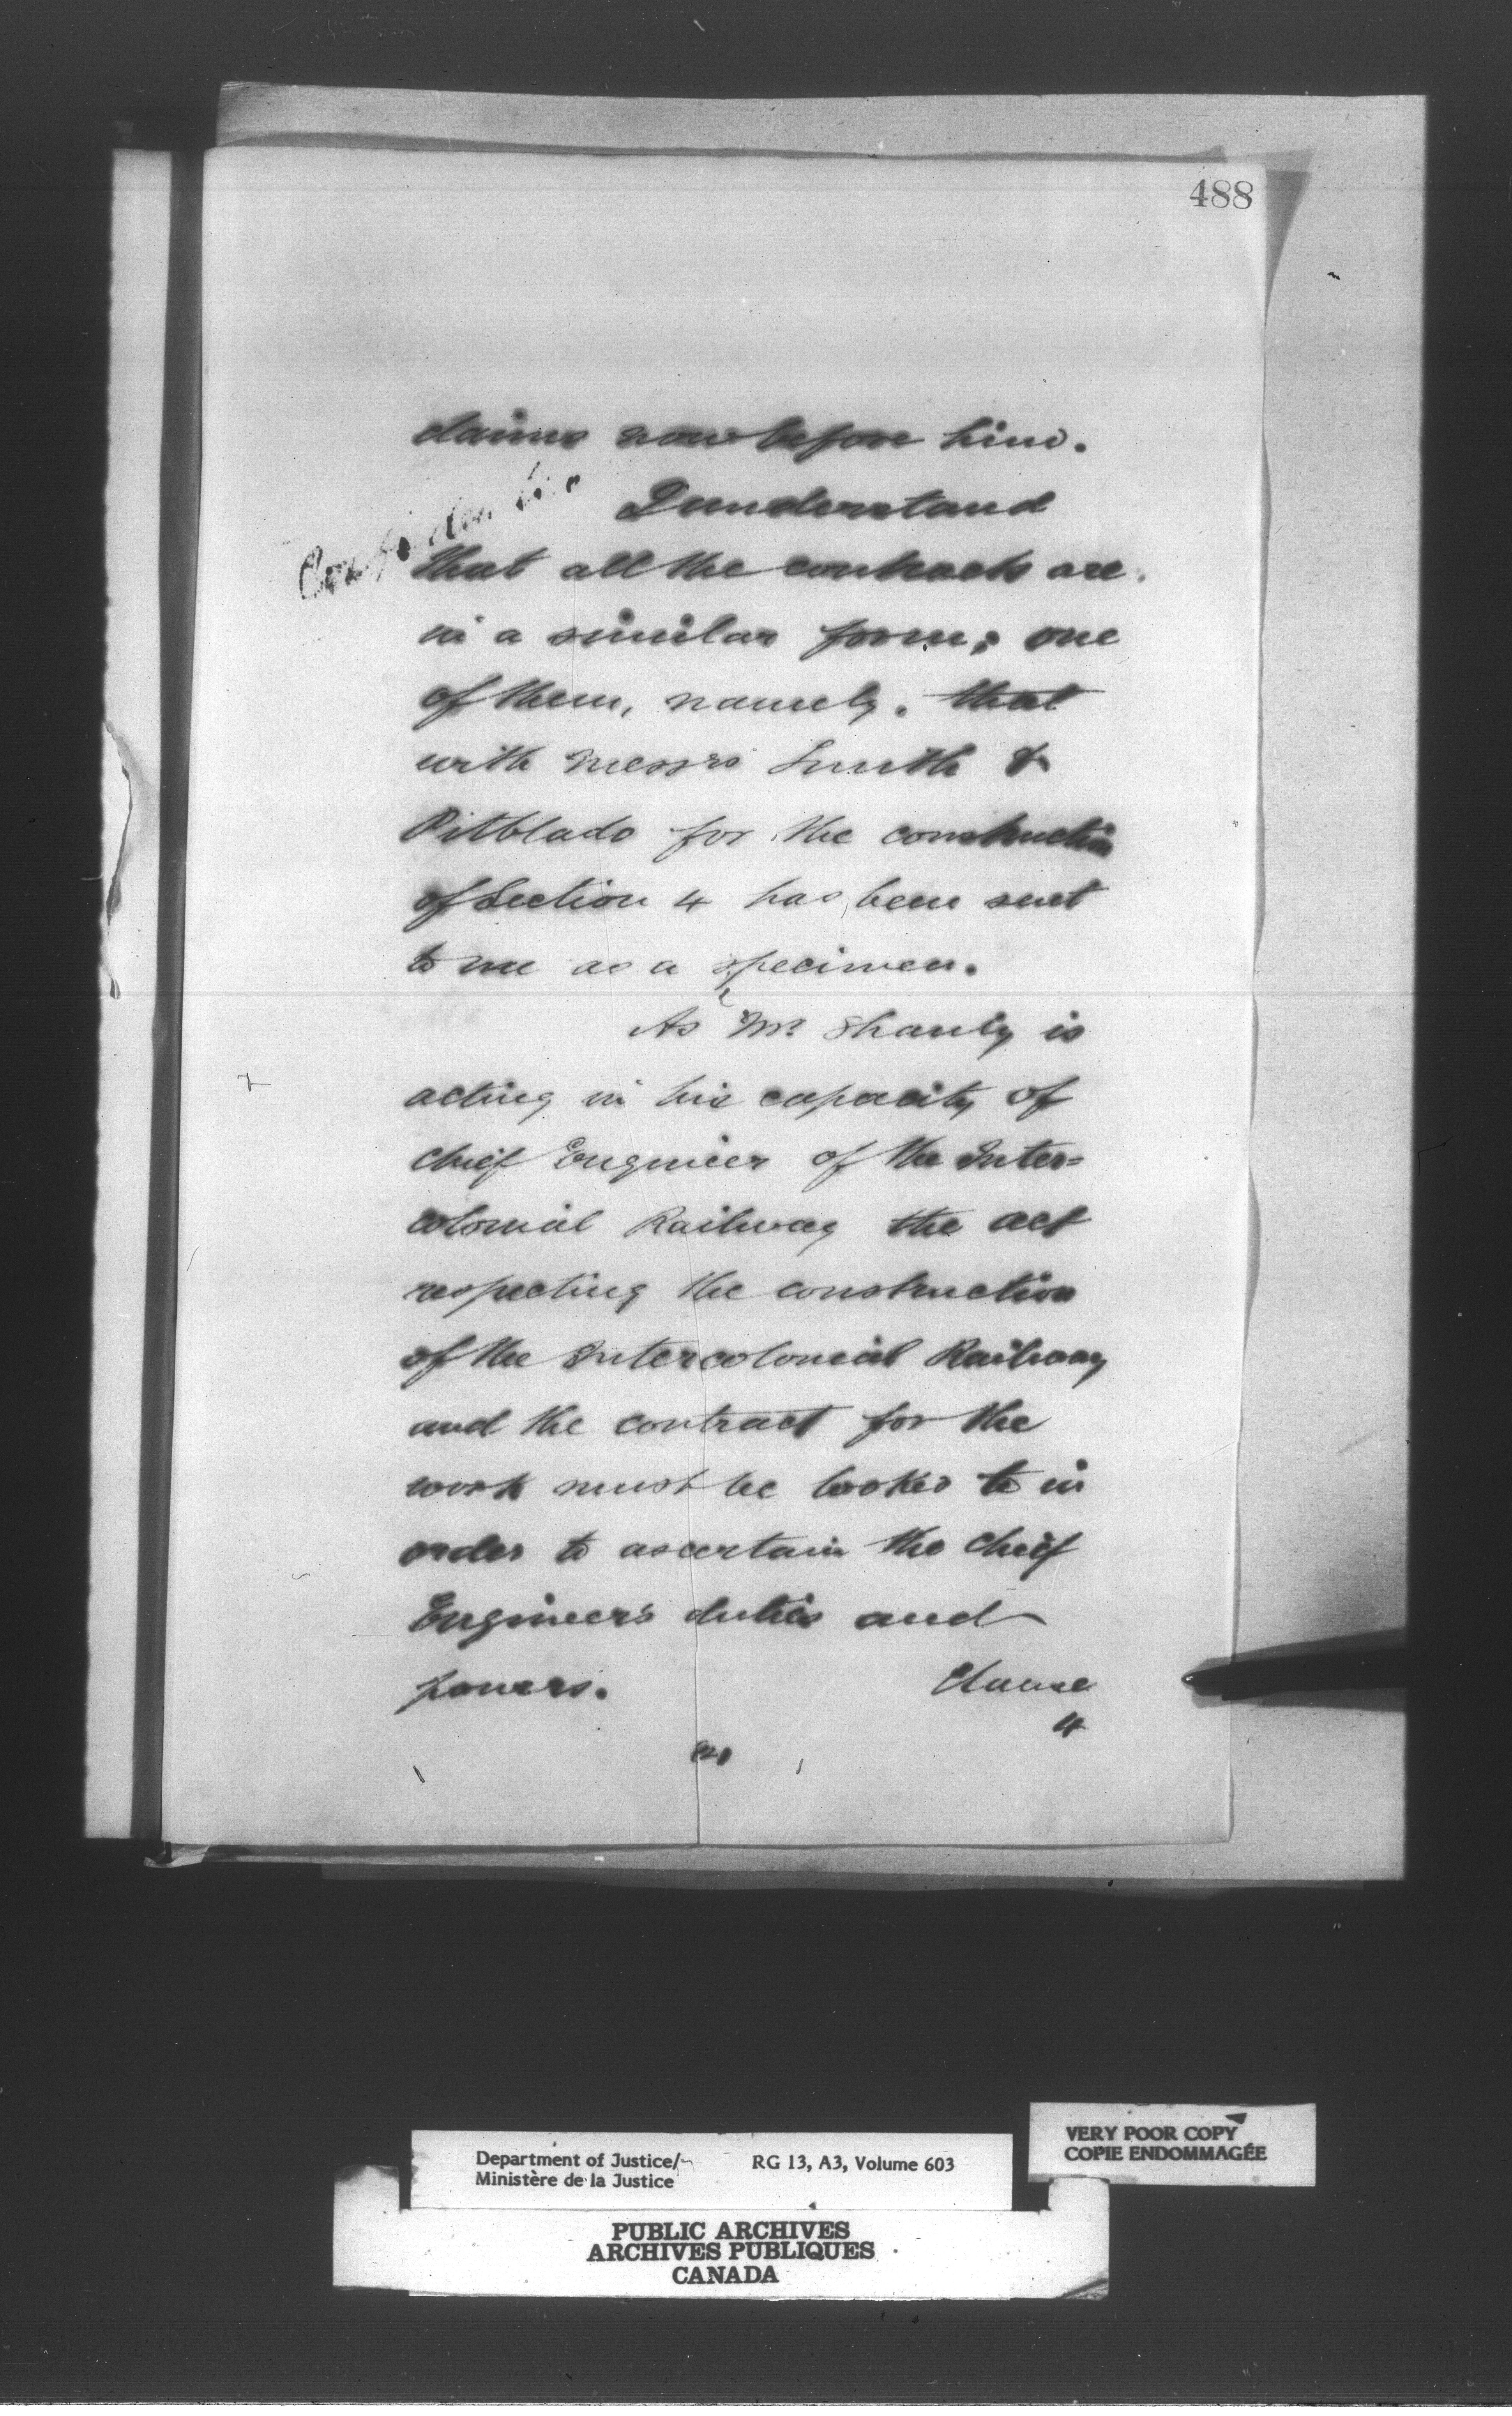 488
claims now before him.
Confidential
I understand
that all the contracts are
in a similar form; one
of them, namely, that
with Messrs Smith &
Pitblado for the construction
of Section 4 has been sent
to me as a specimen.
As Mr. Shanly is
acting in his capacity of
Chief Engineer of the Inter=
colonial Railway the act
respecting the construction
of the Intercolonial Railway
and the contract for the
work must be looked to in
order to ascertain the Chief
Engineer's duties and
powers. Clause
4
Department of Justice/ RG 13, A3, Volume 603
Ministère de la Justice
VERY POOR COPY
COPIE ENDOMMAGÉE
PUBLIC ARCHIVES
ARCHIVES PUBLIQUES
CANADA